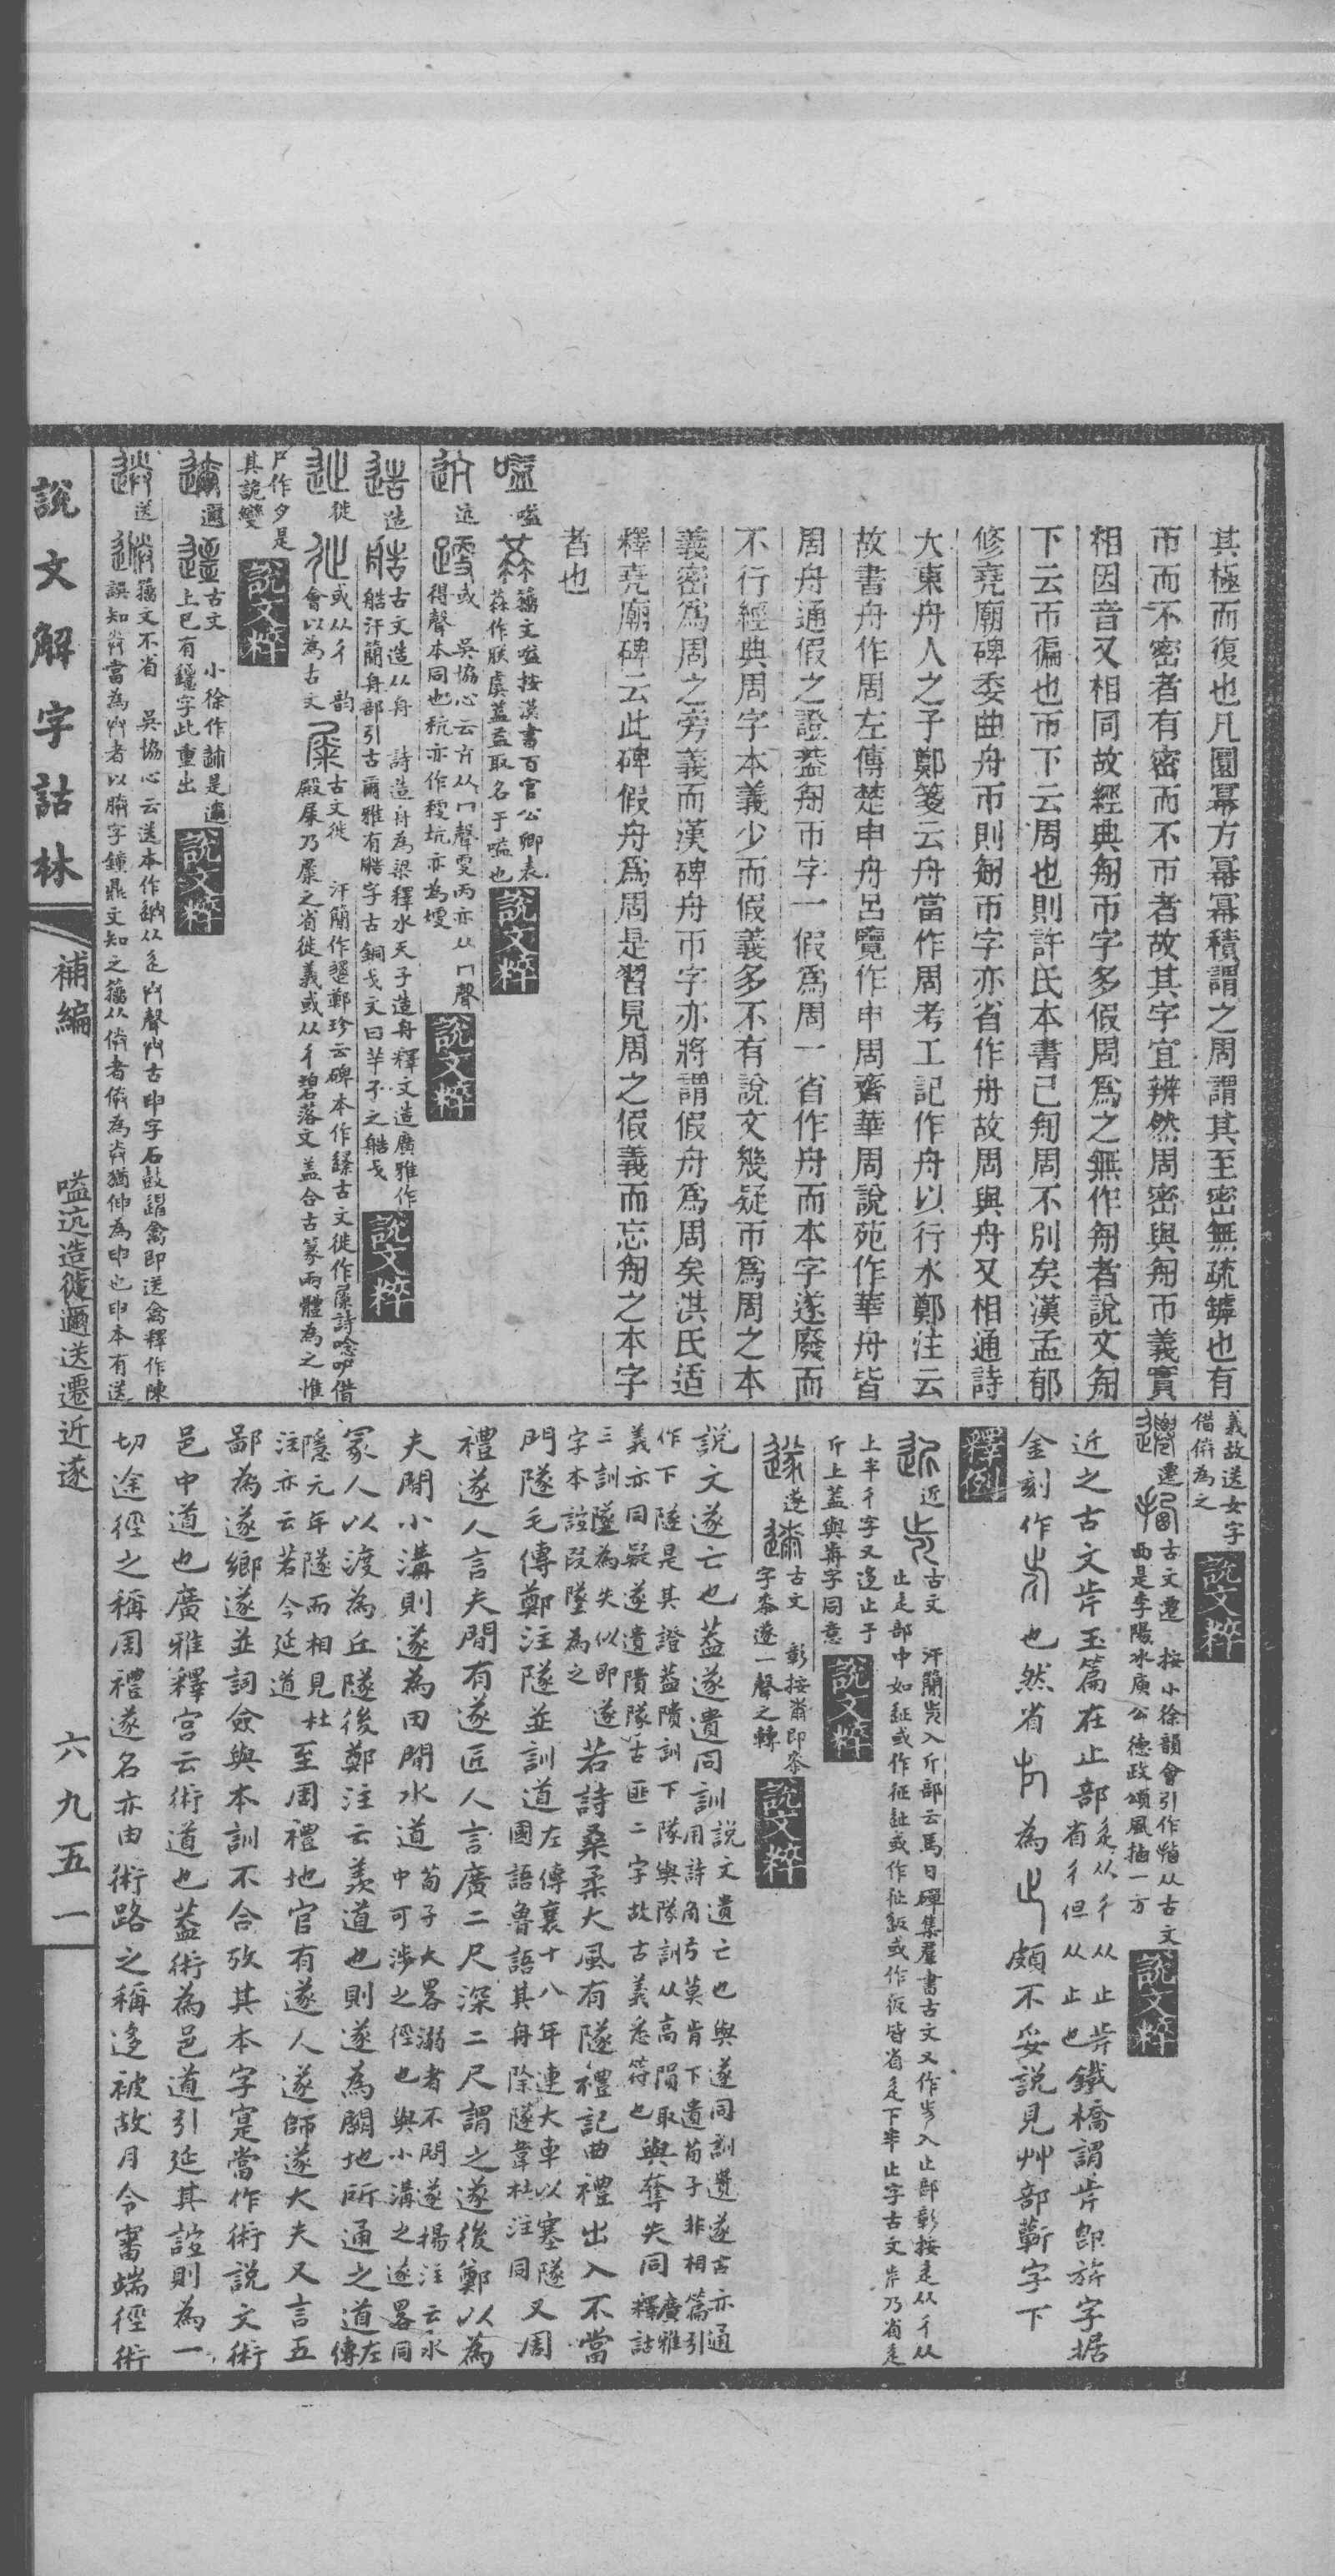 其極而復也凡圜冪方冪冪積謂之周謂其至密無疏鏬也有
帀而不密者有密而不帀者故其字宜辨然周密與匊帀義實
相因音又相同故經典匊帀字多假周爲之無作匊者說文匊
下云帀徧也帀下云周也則許氏本書已匊周不別矣漢孟郁
修堯廟碑委曲舟帀則匊帀字亦省作舟故周與舟又相通詩
大東舟人之子鄭箋云舟當作周考工記作舟以行水鄭注云
故書舟作周左傳楚申舟呂覽作申周齊華周說苑作華舟皆
周舟通假之證葢匊帀字一假爲周一省作舟而本字遂廢而
不行經典周字本義少而假義多不有說文幾疑帀爲周之本
義密爲周之旁義而漢碑舟帀字亦將謂假舟爲周矣洪氏适
釋堯廟碑云此碑假舟爲周是習見周之假義而忘匊之本字
者也
嗌 籒文嗌按漢書百官公卿表
作朕虞葢益取名于嗌也 說文粹
迒 或 吳協心云亢从冂聲㪅丙亦从冂聲
得聲本同也秔亦作稉坑亦為埂 說文粹
造 古文造从舟 詩造舟為梁釋水天子造舟釋文造廣雅作
艁汗簡舟部引古爾雅有艁字古銅戈文曰羊子之艁戈 說文粹
徙 或从彳 韵
會以為古文 古文徙 汗簡作 鄭珍云碑本作 古文徙作屎詩唸吚借
殿屎乃 之省徙義或从彳碧落文葢合古篆兩體為之惟
尸作夕是
其詭變 說文粹
邇 古文 小徐作 是邇
上已有 字此重出 說文粹
送 籒文不省 吳協心云送本作 从辵 聲 古申字石鼓 禽即送禽釋作陳
誤知 當為 者以 字鐘鼎文知之籒从㑞者㑞為 猶伸為申也申本有送
說文解字詁林
補編
嗌迒造徙邇送遷近遂
六九五一
義故送女字
借㑞為之 說文粹
遷 古文遷 按小徐韻會引作 从古文
西是李陽冰庾公德政頌風 一方 說文粹
近之古文芹玉篇在止部 辵从彳从止芹
省彳但从止也 鐵橋謂芹即旂字据
金刻作 也然省 為 頗不妥說見艸部蘄字下
釋例
近 古文 汗簡 入斤部云馬日磾集羣書古文又作 入止部彰按辵从彳从
止走部中如 或作征 或作 或作 皆省辵下半止字古文 乃省辵
上半彳字又迻止于
斤上葢與 字同意 說文粹
遂 古文 彰按 即
字 遂一聲之轉 說文粹
說文遂亡也葢遂遺同訓 說文遺亡也與遂同訓 遂古亦通
用詩角弓莫肯下遺荀子非相篇引
作下隧是其證葢隤訓下隊與隊訓从高隕取與奪失同 廣雅
釋詁
義亦同疑遂遺隤隊古匪二字故古義悉符也
三訓墜為失似即遂
字本誼段墜為之 若詩桑柔大風有隧禮記曲禮出入不當
門隧毛傳鄭注隧並訓道 左傳襄十八年連大車以塞隧又周
國語魯語其舟除隧韋杜注同
禮遂人言夫閒有遂匠人言廣二尺深二尺謂之遂後鄭以為
夫閒小溝則遂為田閒水道 荀子大畧溺者不問遂楊注云水
中可涉之徑也與小溝之遂畧同
冢人以渡為丘隧後鄭注云羨道也則遂為闢地所通之道 左
傳
隱元年隧而相見杜
注亦云若今延道 至周禮地官有遂人遂師遂大夫又言五
鄙為遂鄉遂並詞僉與本訓不合攷其本字寔當作術說文術
邑中道也廣雅釋宮云術道也葢術為邑道引延其誼則為一
切途徑之稱周禮遂名亦由術路之稱迻被故月令審端徑術